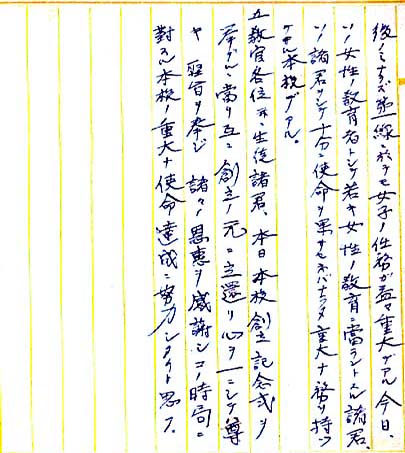 後ノミナラズ第一線ニ於テモ女子ノ任務ガ益々重大デアル今日、
ソノ女性ノ教育者トシテ若キ女性ノ教育ニ當ラントスル諸君、
ソノ諸君ヲシテ十分ニ使命ヲ果サセネバナラヌ重大ナ務ヲ持ツ
本校デアル。
教官各位並ニ生徒諸君、本日本校創立記念式ヲ
擧グルニ當リ互ニ創立ノ元ニ立還リ心ヲ一ニシテ尊
キ聖旨ヲ奉ジ諸々ノ恩恵ヲ感謝シコノ時局ニ
對スル本校ノ重大ナ使命達成ニ努力シタイト思フ。